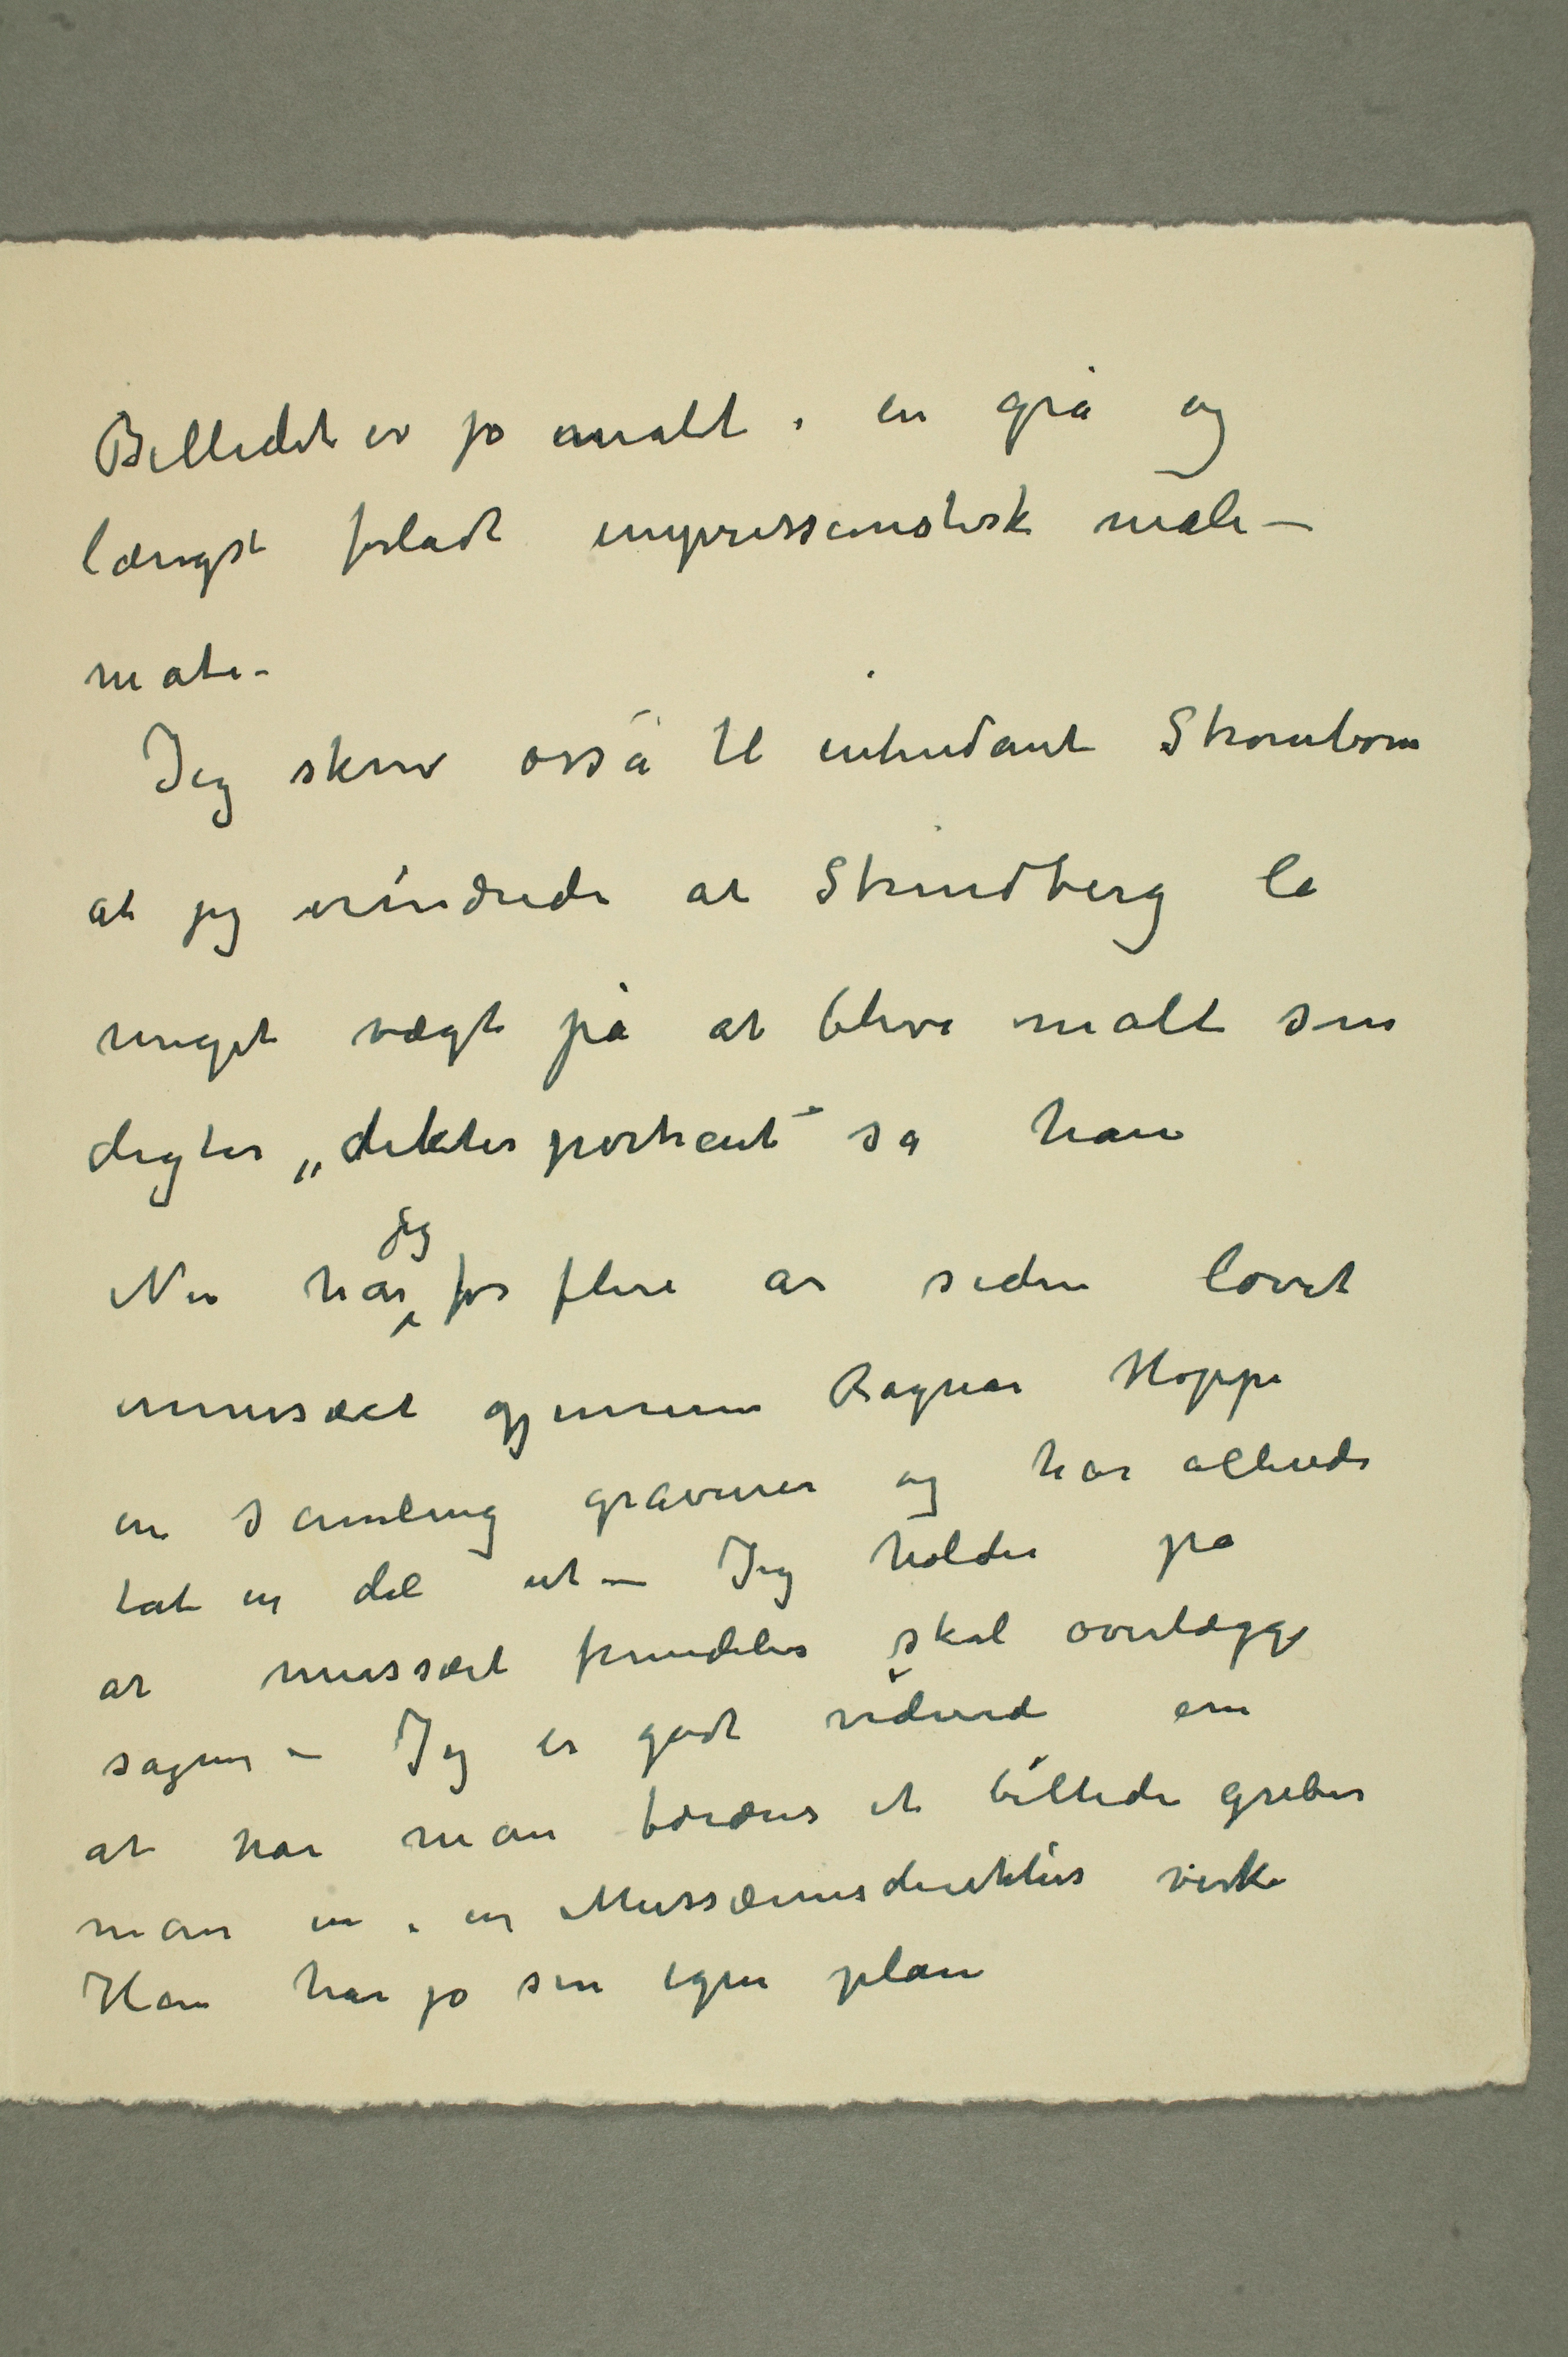 Billedet er jo malt i en grå og
længst forladt impressionistisk male–
måte–
Jeg skrev osså til intendant Strømbom
at jeg erindrede at Strindberg la
meget vægt på at blive malt som
digter „dikterportræt“ sa han
Nu har jeg for flere år siden lovet
musæet gjennem Ragnar Hoppe
en samling gravurer og har allerede
tat en del ut – Jeg holder på
at mussæet fremdeles skal overlægge
sagen – Jeg er godt vidende om
at når man forærer et billede griber
man in i en Mussæumsdirektørs virke
Han har jo sin egen plan